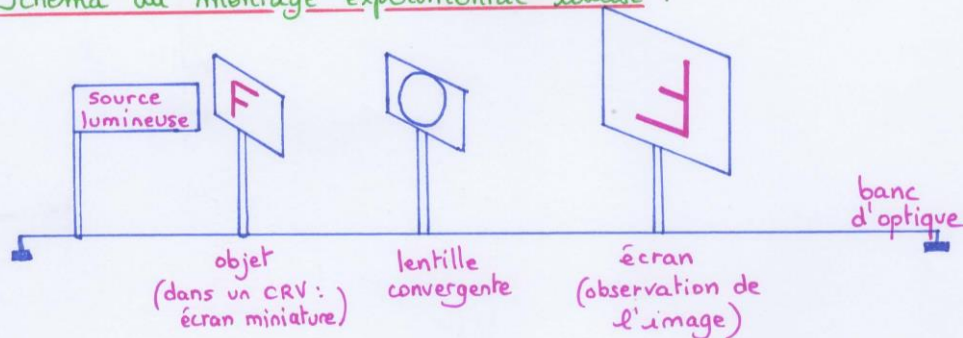 Schéma du montage expérimental
source
lumineuse
F
F
banc
d'optique
objet
(dans un CRV :
écran miniature)
lentille
convergente
écran
(observation de
l'image)